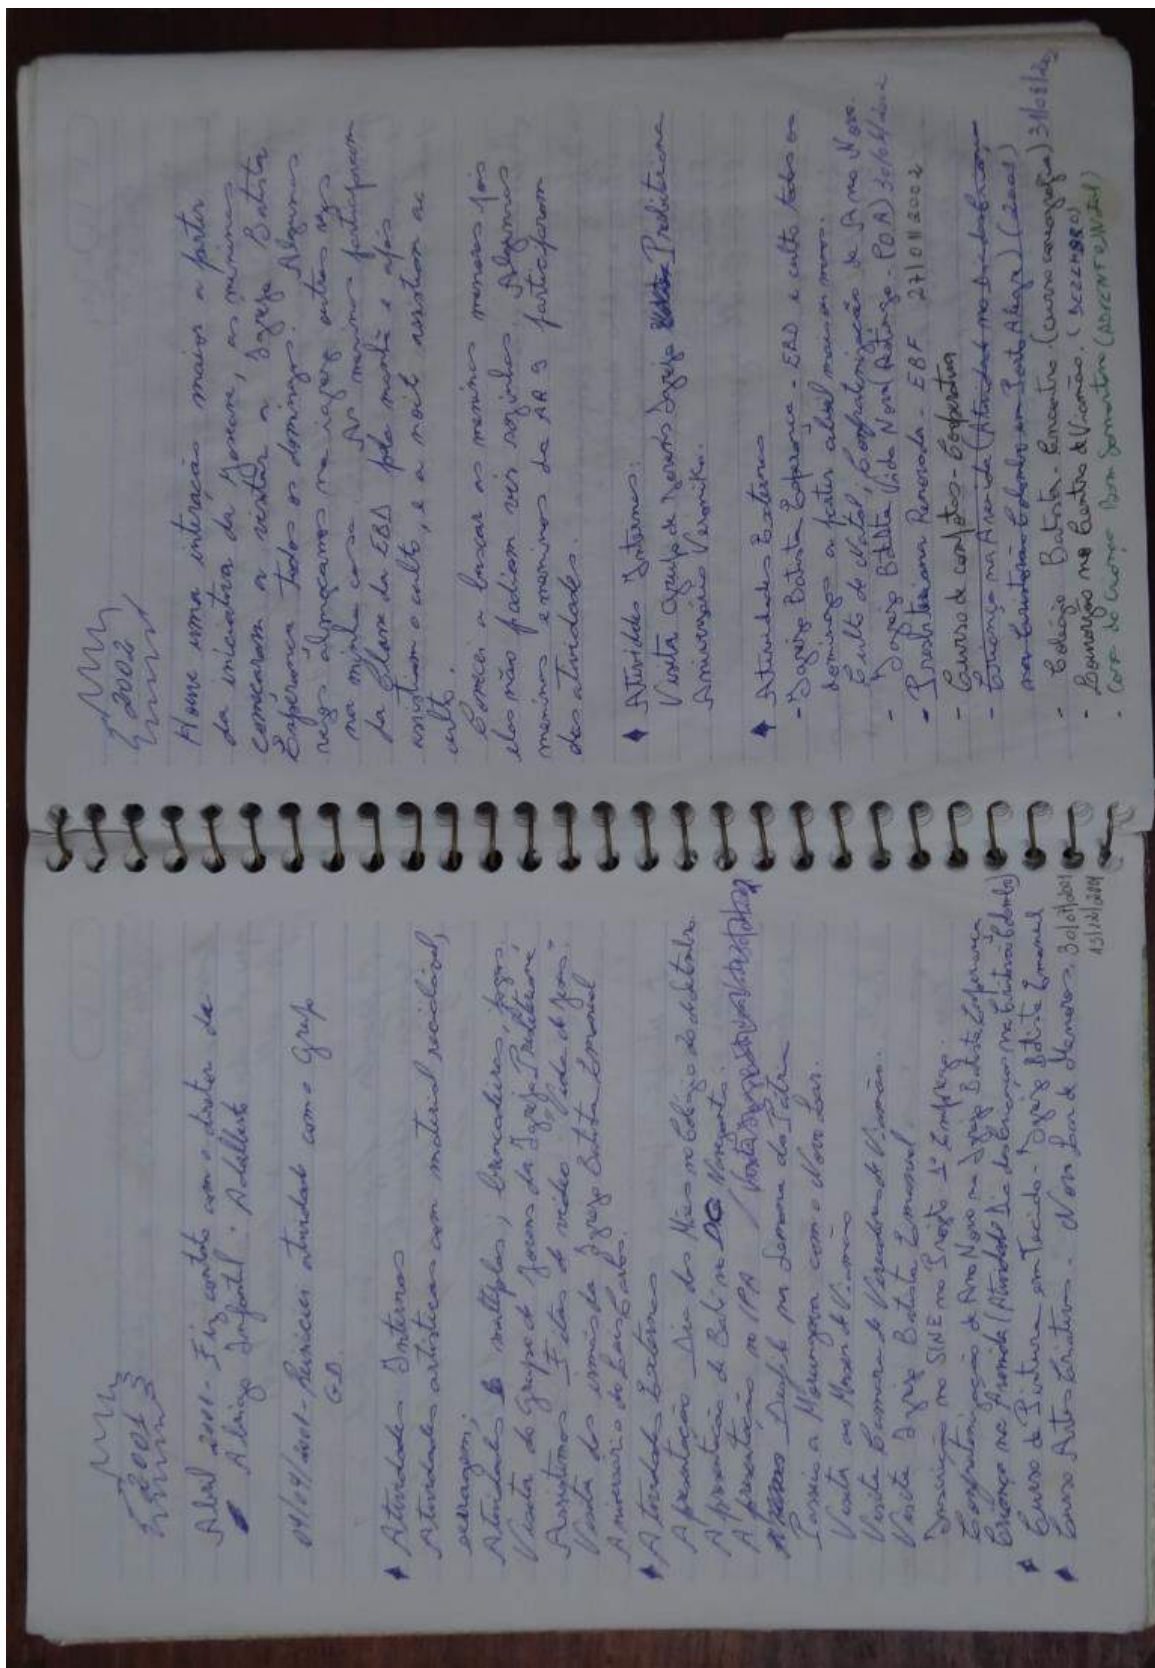 2001
Abril 2001 - Fiz contato com o diretor do
Abrigo Infantil. Adalberto
04/04/2001 - Reiniciei atividade com o Grupo
G.D.
Atividades Internas
Atividades artísticas com material reciclável,
Atividades multiplas, brincadeiras, jogos.
Visita do Grupo de Jovens da Igreja Presbiteriana
Assistimos Fitas de vídeo "Vida de Jesus"
Visita dos irmãos da Igreja Batista Emanuel
Aniversário do Luis Carlos.
Atividades Externas
Apresentação Dia das Mães no Colégio
Apresentação do Bob no DG
Apresentação no IPA /
Desfile na Semana da Pátria
Passeio a Morungava com o Novo Lar.
Visita ao Museu de Viamão
Visita Camara de Vereadores de Viamão.
Visita Igreja Batista Emanuel.
Inscrição no SINE no Projeto 1º Emprego.
Confraternização de Ano Novo na Igreja Batista Esperança
Criança na Avenida (Atividade Dia das Crianças na
Curso de Pintura em Tecido - Igreja Batista Emanuel 30/07/2001
Curso Artes Criativas - Novo Lar de Menores. 13/12/2001
2002
Houve uma interação maior a partir
da iniciativa da Joseana, as meninas
começaram a visitar a Igreja Batista
Esperança todos os domingos. Algumas
vezes almoçamos na igreja, outras vezes
na minha casa. As meninas participavam
da Classe da EBD pela manhã e após
assistiam o culto, e a noite assistiam ao
culto.
Comecei a buscar as meninas menores pois
elas não podiam vir sozinhas. Algumas
meninas e meninos da AR 9 participaram
das atividades.
Atividades Internas:
Visita Grupo de Jovens Igreja Presbiteriana
Aniversário Veronika.
Atividades Externas
- Igreja Batista Esperança - EBD e culto todos os
domingos a partir abril mais ou menos.
Culto de Natal, Confraternização de Ano Novo.
- Igreja Batista Vida Nova (Restinga - POA) 30/06/2002
- Presbiteriana Renovada - EBF 27/01/2002
- Curso de confeitos - Cooperativa
- Criança na Avenida (Atividade no
em Porto Alegre) (2001)
- Colégio Batista - Encontro (curso coreografia) 31/08/2002
- no Centro de Viamão. (DEZEMBRO)
- Cor do Criança Bom Samaritano